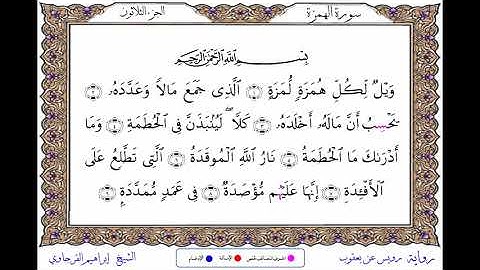 سورة الهمزة
الجزء الثلاثون
بِسْمِ اللَّهِ الرَّحْمَٰنِ الرَّحِيمِ
وَيْلٌ لِّكُلِّ هُمَزَةٍ لُّمَزَةٍ ١ ٱلَّذِى جَمَعَ مَالًا وَعَدَّدَهُۥ ٢
يَحْسِبُ أَنَّ مَالَهُۥٓ أَخْلَدَهُۥ ٣ كَلَّاۖ لَيُنۢبَذَنَّ فِى ٱلْحُطَمَةِ ٤ وَمَآ
أَدْرَىٰكَ مَا ٱلْحُطَمَةُ ٥ نَارُ ٱللَّهِ ٱلْمُوقَدَةُ ٦ ٱلَّتِى تَطَّلِعُ عَلَى
ٱلْأَفْـِٔدَةِ ٧ إِنَّهَا عَلَيْهُم مُّؤْصَدَةٌ ٨ فِى عَمَدٍ مُّمَدَّدَةٍ ٩
رواية رويس عن يعقوب
الإمالة
الإدغام
الشيخ إبراهيم الفرجاوي